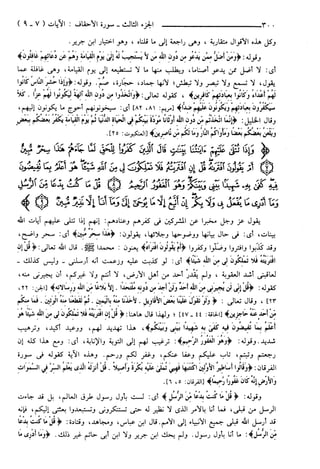 ٣٠٠ الجزء الثالث - سورة الأحقاف: الآيات (٧ - ٩)
وكل هذه الأقوال متقاربة، وهي راجعة إلى ما قلناه، وهو اختيار ابن جرير.
وقوله: ﴿ومن أضل ممن يدعو من دون الله من لا يستجيب له إلى يوم القيامة وهم عن دعائهم غافلون﴾
أي: لا أضل ممن يدعو أصناما، ويطلب منها ما لا تستطيعه إلى يوم القيامة، وهي غافلة عما
يقول، لا تسمع ولا تبصر ولا تبطش؛ لأنها جماد، حجارة، صم. وقوله: ﴿وإذا حشر الناس كانوا
لهم أعداء وكانوا بعبادتهم كافرين﴾، كقوله تعالى: ﴿واتخذوا من دون الله آلهة ليكونوا لهم عزا. كلا
سيكفرون بعبادتهم ويكونون عليهم ضدا﴾ [مريم: ٨١، ٨٢] أي: سيخونونهم أحوج ما يكونون إليهم،
وقال الخليل: ﴿إنما اتخذتم من دون الله أوثانا مودة بينكم في الحياة الدنيا ثم يوم القيامة يكفر بعضكم ببعض
ويلعن بعضكم بعضا ومأواكم النار وما لكم من ناصرين﴾ [العنكبوت: ٢٥].
﴿وإذا تتلى عليهم آياتنا بينات قال الذين كفروا للحق لما جاءهم هذا سحر مبين
أم يقولون افتراه قل إن افتريته فلا تملكون لي من الله شيئا هو أعلم بما تفيضون فيه كفى به
شهيدا بيني وبينكم وهو الغفور الرحيم قل ما كنت بدعا من الرسل وما أدري ما
يفعل بي ولا بكم إن أتبع إلا ما يوحى إلي وما أنا إلا نذير مبين﴾
يقول عز وجل مخبرا عن المشركين في كفرهم وعنادهم: إنهم إذا تتلى عليهم آيات الله
بينات، أي: في حال بيانها ووضوحها وجلائها، يقولون: ﴿هذا سحر مبين﴾ أي: سحر واضح،
وقد كذبوا وافتروا وضلوا وكفروا ﴿أم يقولون افتراه﴾ يعنون: محمدا ﷺ. قال الله تعالى: ﴿قل إن
افتريته فلا تملكون لي من الله شيئا﴾ أي: لو كذبت عليه وزعمت أنه أرسلني - وليس كذلك -
لعاقبني أشد العقوبة، ولم يقدر أحد من أهل الأرض، لا أنتم ولا غيركم، أن يجيرني منه،
كقوله: ﴿قل إني لن يجيرني من الله أحد ولن أجد من دونه ملتحدا. إلا بلاغا من الله ورسالاته﴾ [الجن: ٢٢،
٢٣]، وقال تعالى: ﴿ولو تقول علينا بعض الأقاويل. لأخذنا منه باليمين. ثم لقطعنا منه الوتين. فما منكم
من أحد عنه حاجزين﴾ [الحاقة: ٤٤ - ٤٧]؛ ولهذا قال هاهنا: ﴿قل إن افتريته فلا تملكون لي من الله شيئا هو
أعلم بما تفيضون فيه كفى به شهيدا بيني وبينكم﴾، هذا تهديد لهم، ووعيد أكيد، وترهيب
شديد. وقوله: ﴿وهو الغفور الرحيم﴾: ترغيب لهم إلى التوبة والإنابة، أي: ومع هذا كله إن
رجعتم وتبتم، تاب عليكم وعفا عنكم، وغفر لكم ورحم. وهذه الآية كقوله في سورة
الفرقان: ﴿وقالوا أساطير الأولين اكتتبها فهي تملى عليه بكرة وأصيلا. قل أنزله الذي يعلم السر في السموات
والأرض إنه كان غفورا رحيما﴾ [الفرقان: ٥، ٦].
وقوله: ﴿قل ما كنت بدعا من الرسل﴾ أي: لست بأول رسول طرق العالم، بل قد جاءت
الرسل من قبلي، فما أنا بالأمر الذي لا نظير له حتى تستنكروني وتستبعدوا بعثتي إليكم، فإنه
قد أرسل الله قبلي جميع الأنبياء إلى الأمم. قال ابن عباس، ومجاهد، وقتادة: ﴿قل ما كنت بدعا
من الرسل﴾: ما أنا بأول رسول. ولم يحك ابن جرير ولا ابن أبي حاتم غير ذلك. ﴿وما أدري ما